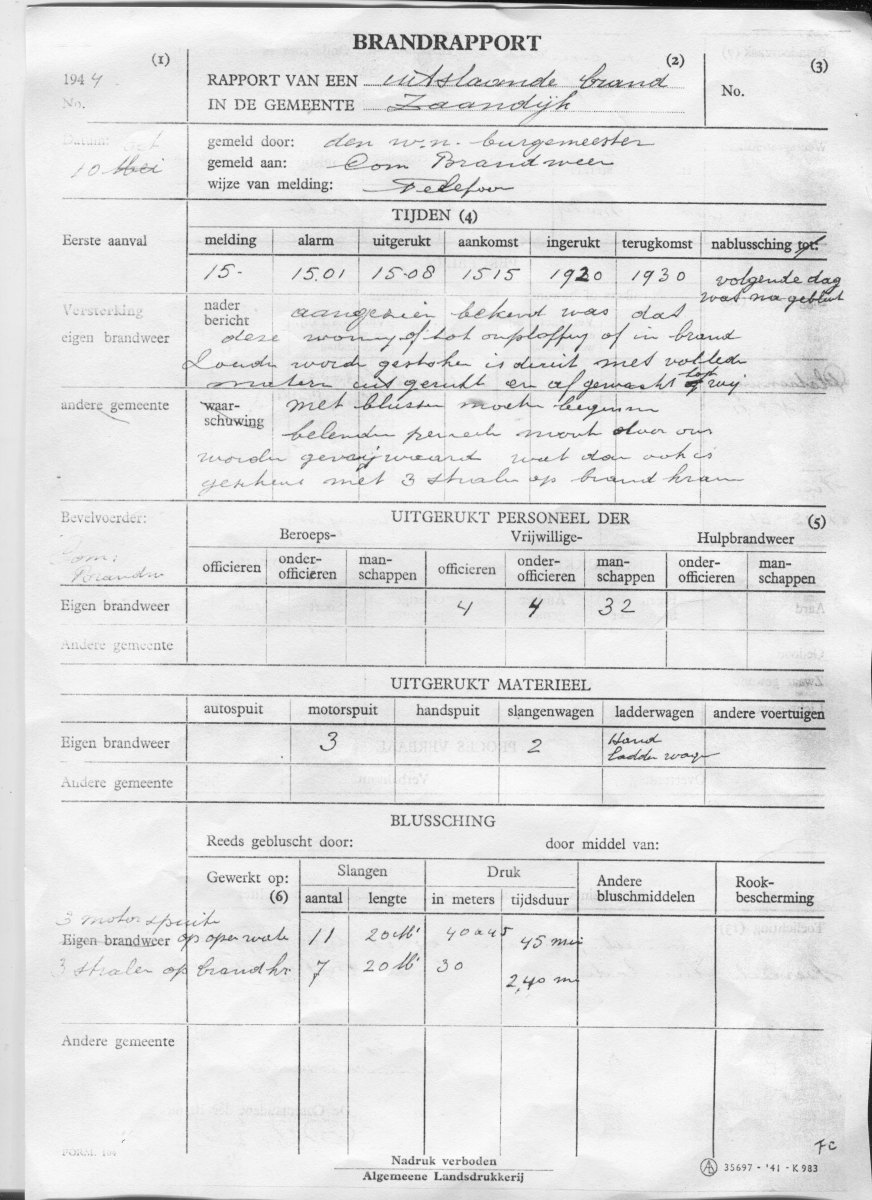 BRANDRAPPORT
(1) (2) (3)
1944
No.
RAPPORT VAN EEN uitslaande brand
IN DE GEMEENTE Zaandijk
No.
Datum: Oct
10 Mei
gemeld door: den w.n. burgemeester
gemeld aan: Com Brandweer
wijze van melding: Telefoon
TIJDEN (4)
Eerste aanval
melding alarm uitgerukt aankomst ingerukt terugkomst nablussching tot:
15.- 15.01 15.08 1515 1920 1930 volgende dag
was na geblust
Versterking
eigen brandweer
nader
bericht
aangezien bekend was dat
deze woning of tot ontploffing of in brand
zouden worde gestoken is direct met volledig
materieel uitgerukt en afgewacht tot wij
andere gemeente
waar-
schuwing
met blussen moeten beginnen
belenden perceelen moest door ons
worden gevrijwaard wat dan ook is
geschied met 3 stralen op brandkraan
Bevelvoerder:
Com:
Brandw
UITGERUKT PERSONEEL DER (5)
Beroeps- Vrijwillige- Hulpbrandweer
officieren onder-officieren man-schappen officieren onder-officieren man-schappen onder-officieren man-schappen
Eigen brandweer 4 4 32
Andere gemeente
UITGERUKT MATERIEEL
autospuit motorspuit handspuit slangenwagen ladderwagen andere voertuigen
Eigen brandweer 3 2 Hand
ladder wagen
Andere gemeente
BLUSSCHING
Reeds gebluscht door: door middel van:
Gewerkt op: (6)
Slangen Druk
aantal lengte in meters tijdsduur
Andere bluschmiddelen
Rook-bescherming
3 motorspuite
Eigen brandweer op open water 11 20 M' 40 a 45 45 min
3 stralen op brandkr. 7 20 M' 30 2,40 m
Andere gemeente
FORM. 104
Nadruk verboden
Algemene Landsdrukkerij
35697 - '41 - K 983
FC